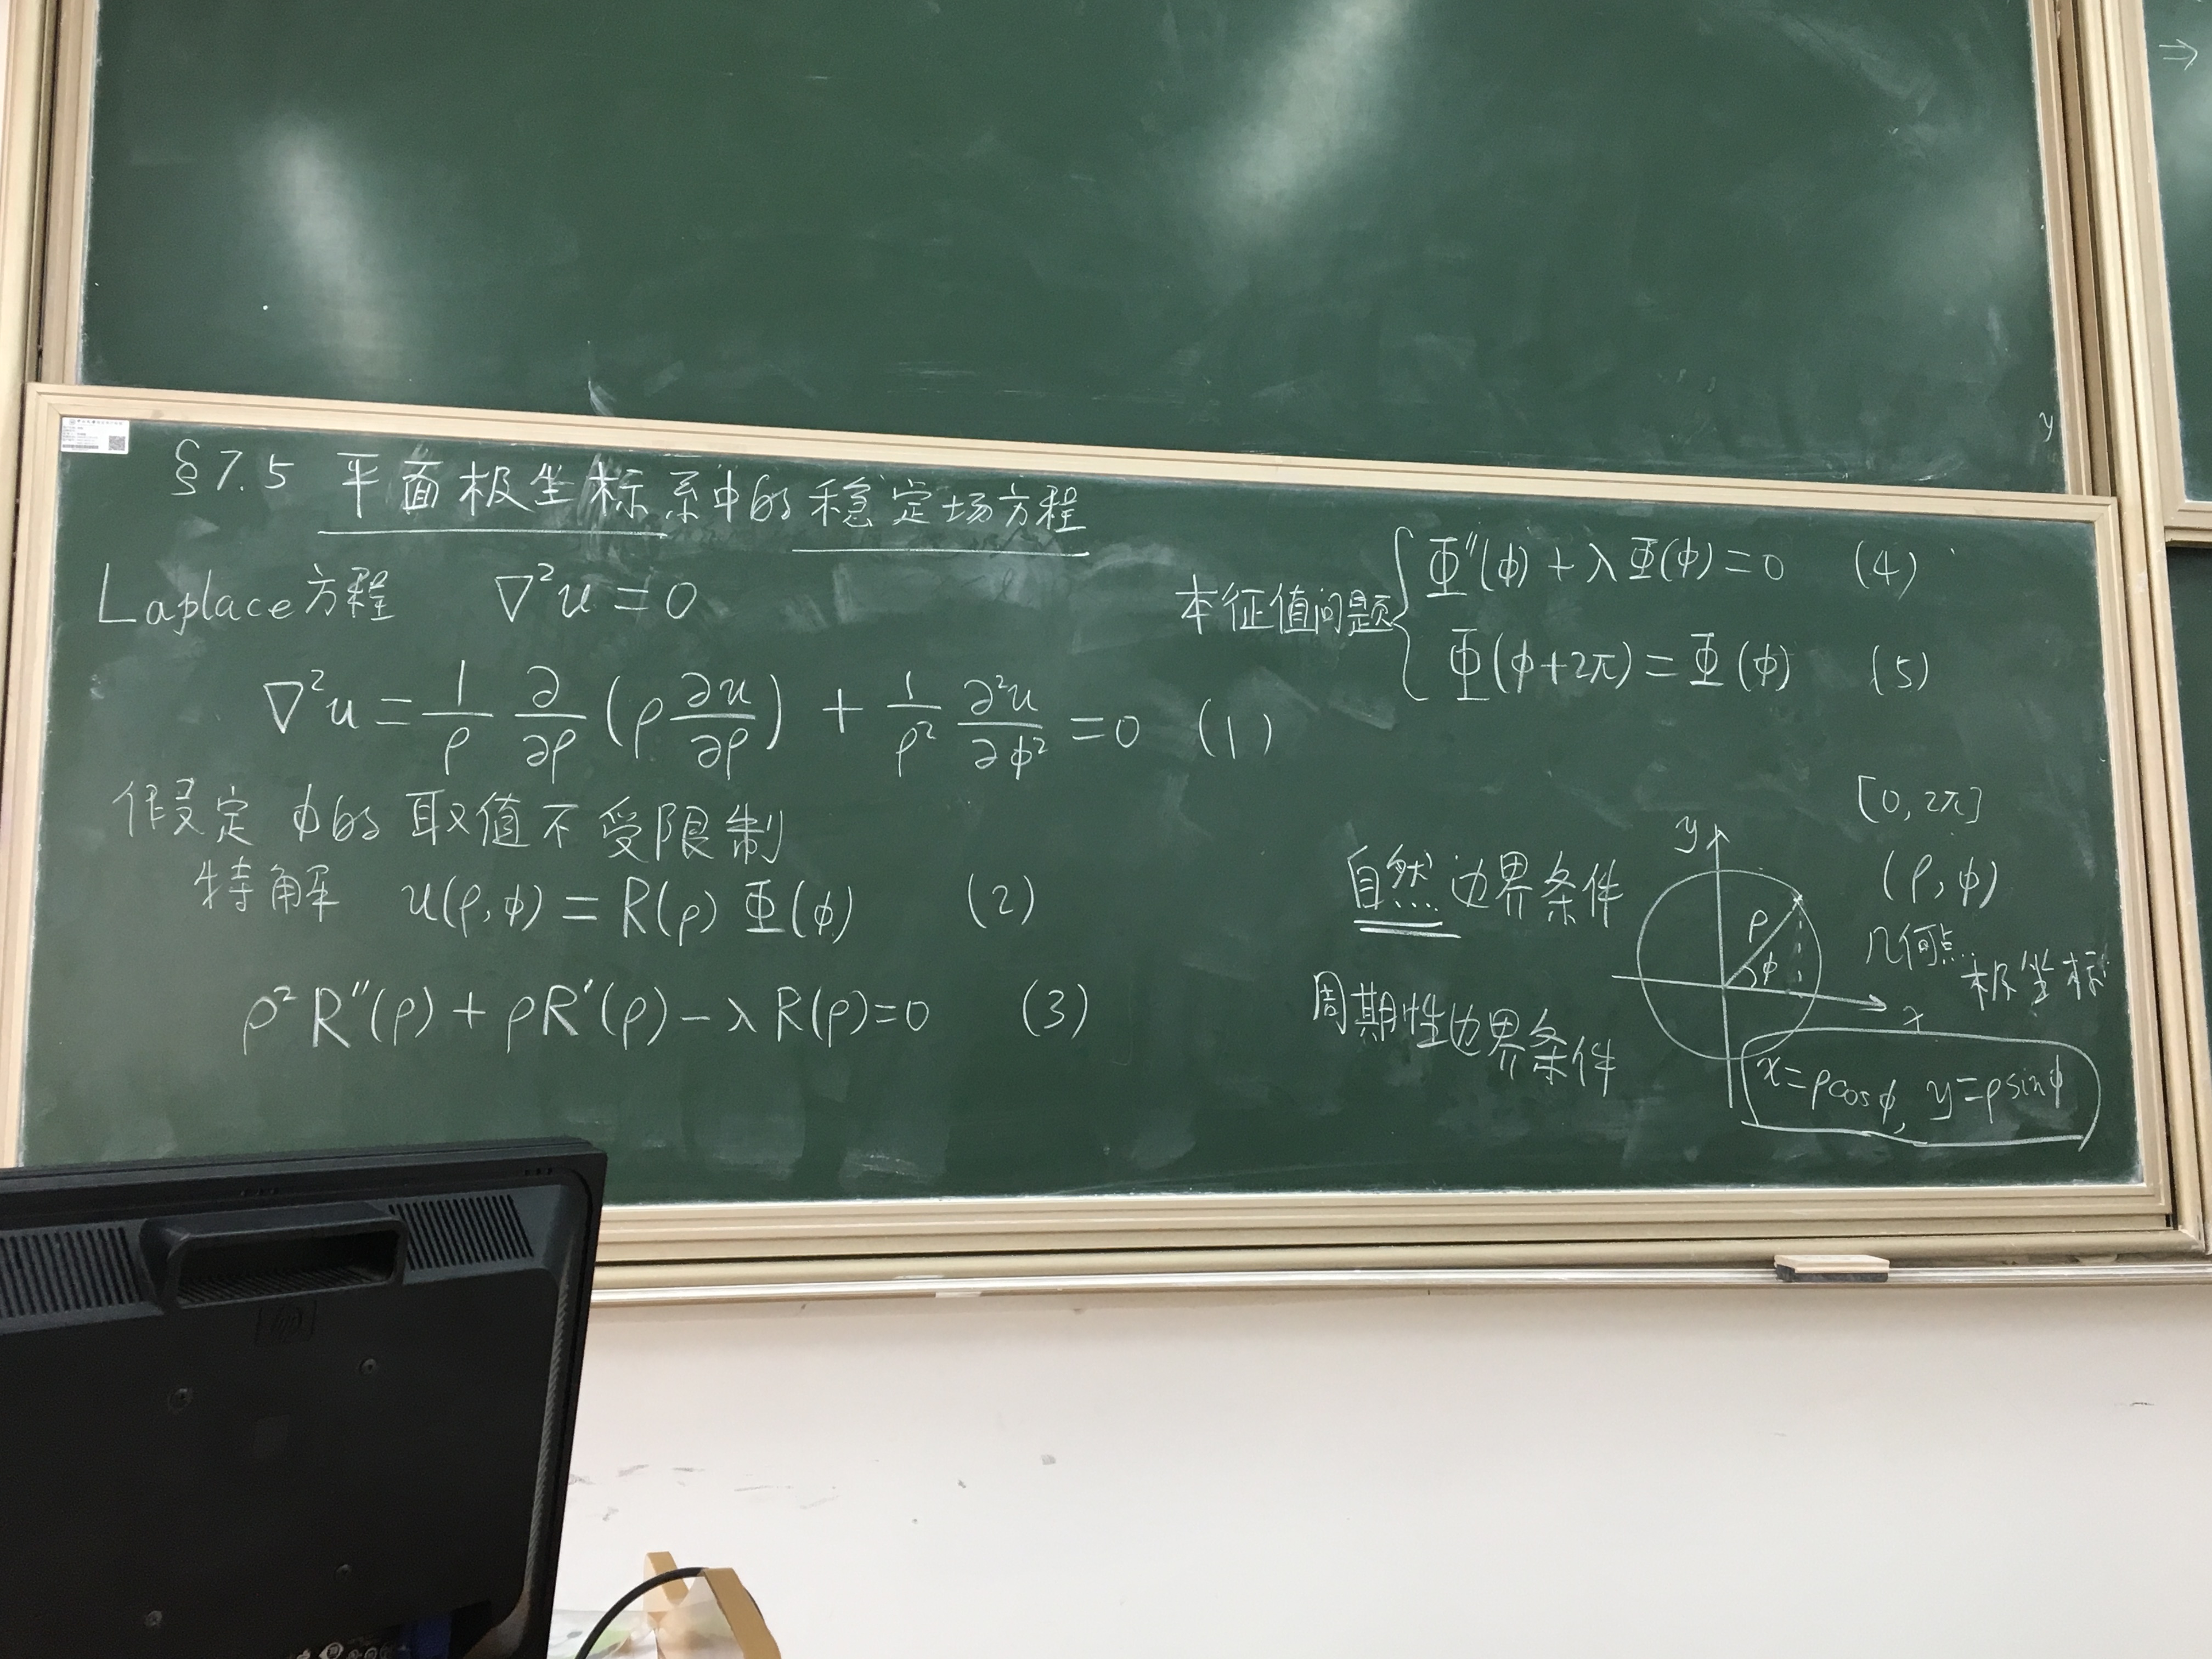 §7.5 平面极坐标系中的稳定场方程
Laplace方程 ∇²u=0
∇²u = 1/ρ ∂/∂ρ (ρ ∂u/∂ρ) + 1/ρ² ∂²u/∂φ² = 0 (1)
假定 φ的取值不受限制
特解 u(ρ,φ) = R(ρ) Φ(φ) (2)
ρ²R″(ρ) + ρR′(ρ) − λR(ρ)=0 (3)
本征值问题
Φ″(φ) + λΦ(φ)=0 (4)
Φ(φ+2π) = Φ(φ) (5)
自然边界条件
周期性边界条件
y
ρ
φ
x
[0, 2π]
(ρ, φ)
几何点
极坐标
x=ρcosφ, y=ρsinφ
⇒
y
hp